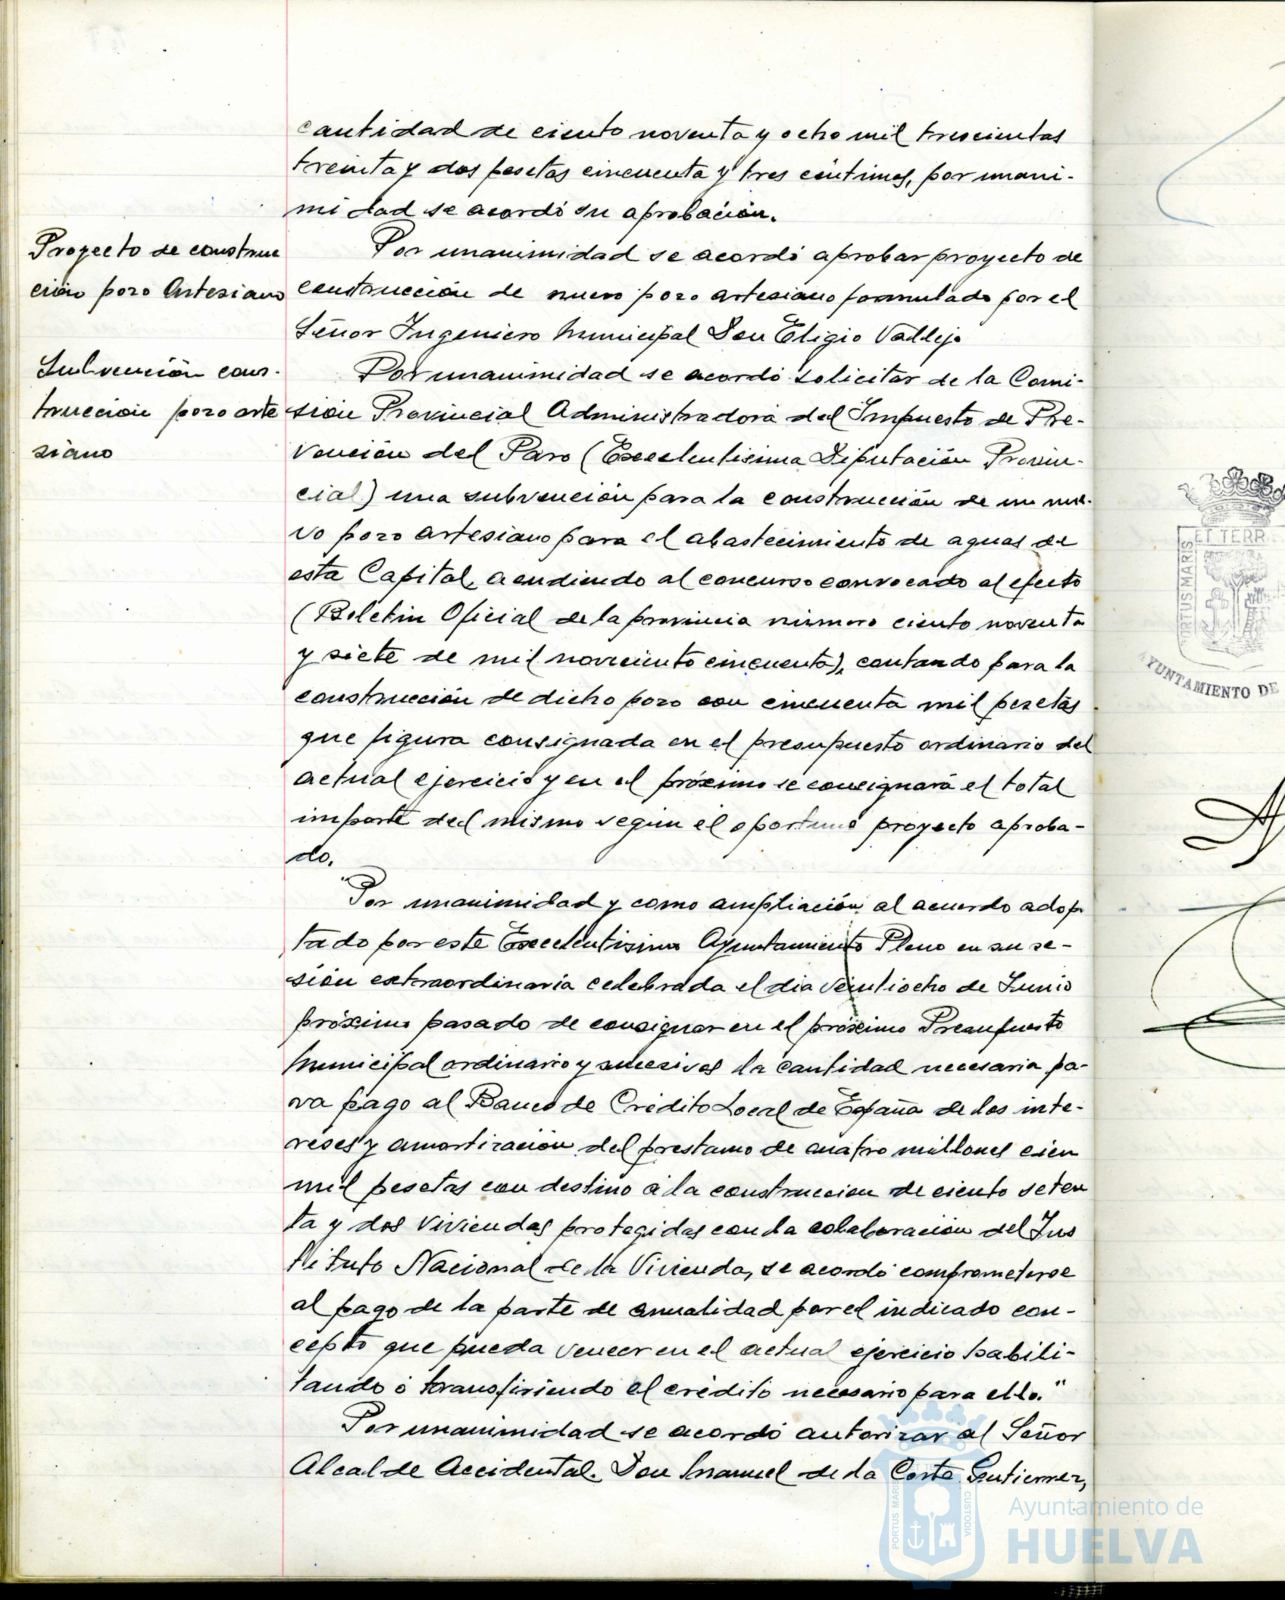 cantidad de ciento noventa y ocho mil trescientas
treinta y dos pesetas cincuenta y tres céntimos, por unani-
midad se acordó su aprobación.
Proyecto de construc
ción pozo Artesiano
Por unanimidad se acordó aprobar proyecto de
construcción de nuevo pozo artesiano formulado por el
Señor Ingeniero Municipal Don Eligio Vallejo
Subvención cons-
trucción pozo arte
siano
Por unanimidad se acordó solicitar de la Comi-
sión Provincial Administradora del Impuesto de Pre-
vención del Paro (Excelentisima Diputación Provin-
cial) una subvención para la construcción de un nue-
vo pozo artesiano para el abastecimiento de aguas de
esta Capital, acudiendo al concurso convocado al efecto
(Boletin Oficial de la provincia número ciento noventa
y siete de mil noveciento cincuenta), contando para la
construcción de dicho pozo con cincuenta mil pesetas
que figura consignada en el presupuesto ordinario del
actual ejercicio y en el próximo se consignará el total
importe del mismo según el oportuno proyecto aproba-
do.
"Por unanimidad y como ampliación al acuerdo adop
tado por este Excelentisimo Ayuntamiento Pleno en su se-
sión extraordinaria celebrada el dia veintiocho de Junio
próximo pasado de consignar en el próximo Presupuesto
Municipal ordinario y sucesivos la cantidad necesaria pa-
ra pago al Banco de Crédito Local de España de los inte-
reses y amortización del prestamo de cuatro millones cien
mil pesetas con destino a la construccion de ciento seten
ta y dos viviendas protegidas con la colaboración del Ins
tituto Nacional de la Vivienda, se acordó comprometerse
al pago de la parte de anualidad por el indicado con-
cepto que pueda vencer en el actual ejercicio habili-
tando ó transfiriendo el crédito necesario para ello."
Por unanimidad se acordó autorizar al Señor
Alcalde Accidental. Don Manuel de la Corte Gutierrez,
ET TERR
PORTUS MARIS
AYUNTAMIENTO DE
PORTUS MARIS
CUSTODIA
Ayuntamiento de
HUELVA